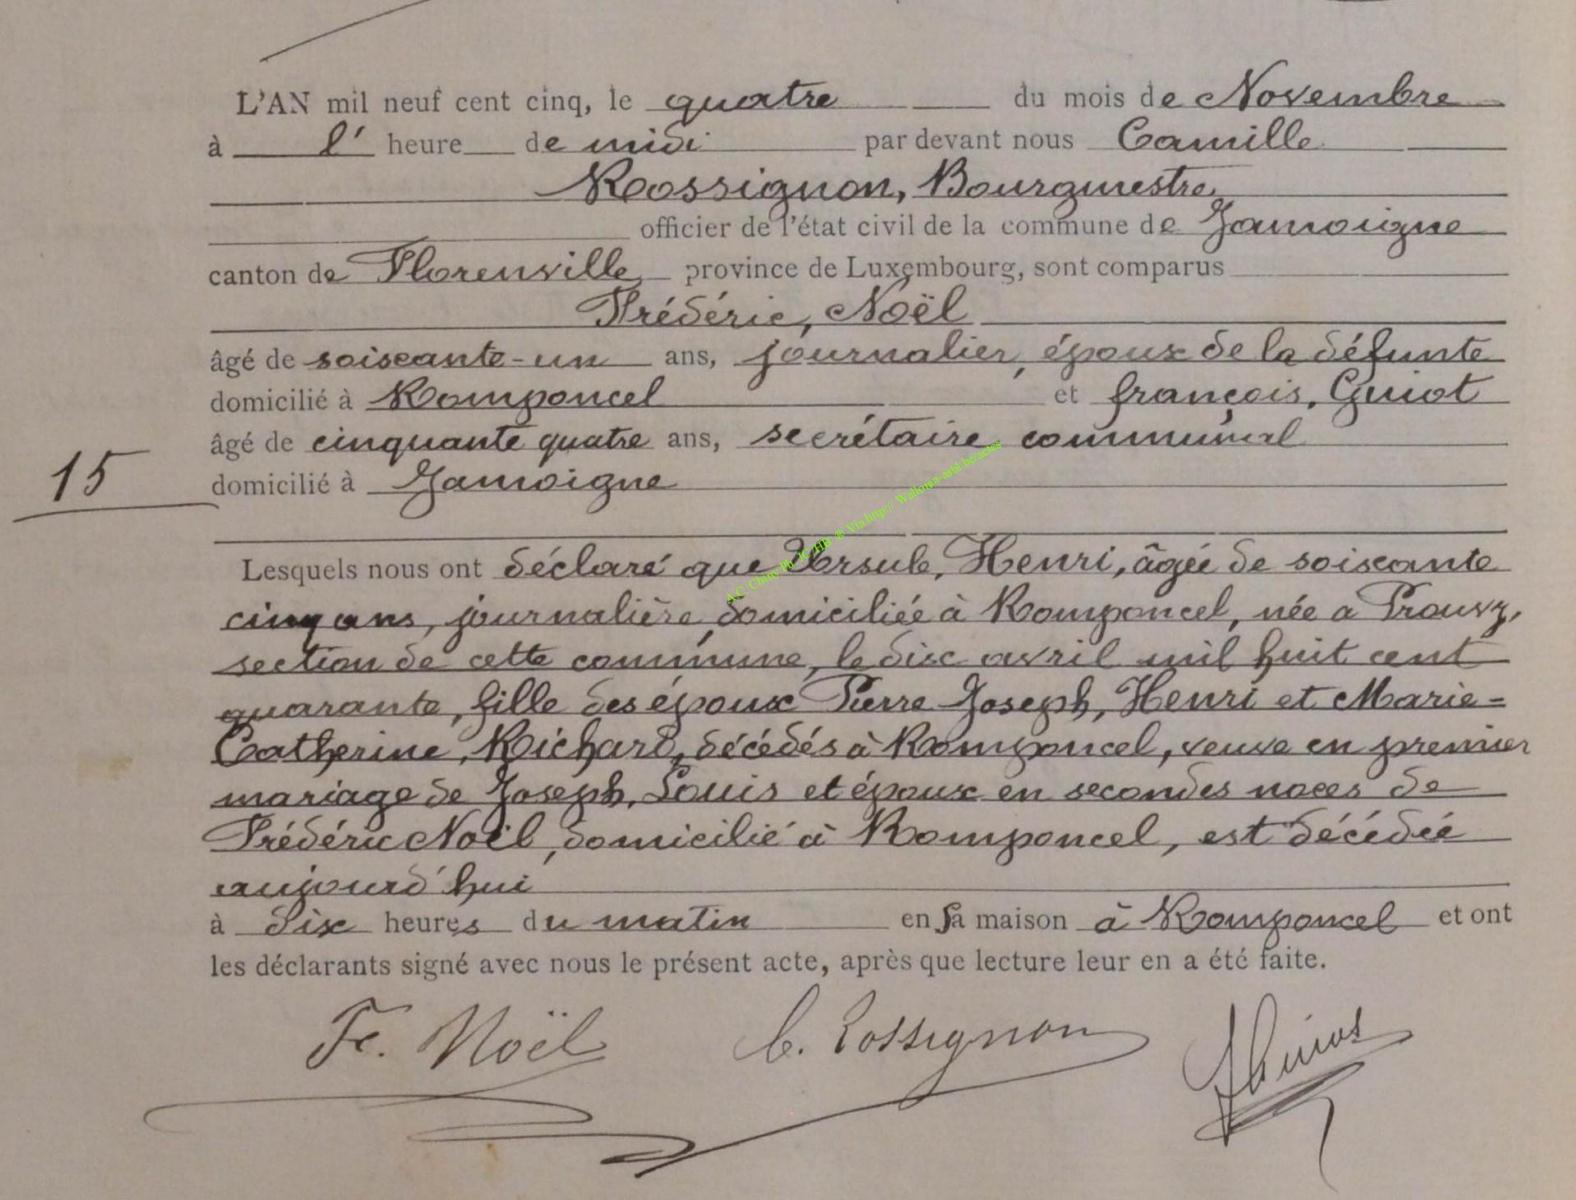 L'AN mil neuf cent cinq, le quatre du mois de Novembre
à l' heure de midi par devant nous Camille
Rossignon, Bourgmestre,
officier de l'état civil de la commune de Jamoigne
canton de Florenville province de Luxembourg, sont comparus
Frédéric, Noël
âgé de soixante-un ans, journalier, époux de la défunte
domicilié à Romponcel et françois, Guiot
âgé de cinquante quatre ans, secrétaire communal
15
domicilié à Jamoigne
Lesquels nous ont déclaré que Ursule, Henri, âgée de soixante
cinq ans, journalière, domiciliée à Romponcel, née a Prouvy,
section de cette commune, le dix avril mil huit cent
quarante, fille des époux Pierre Joseph, Henri et Marie=
Catherine, Richard, décédés à Romponcel, veuve en premier
mariage de Joseph, Louis et époux en secondes noces de
Frédéric Noël, domicilié à Romponcel, est décédée
aujourd'hui
à Six heures du matin en sa maison à Romponcel et ont
les déclarants signé avec nous le présent acte, après que lecture leur en a été faite.
Fc. Noël C. Rossignon